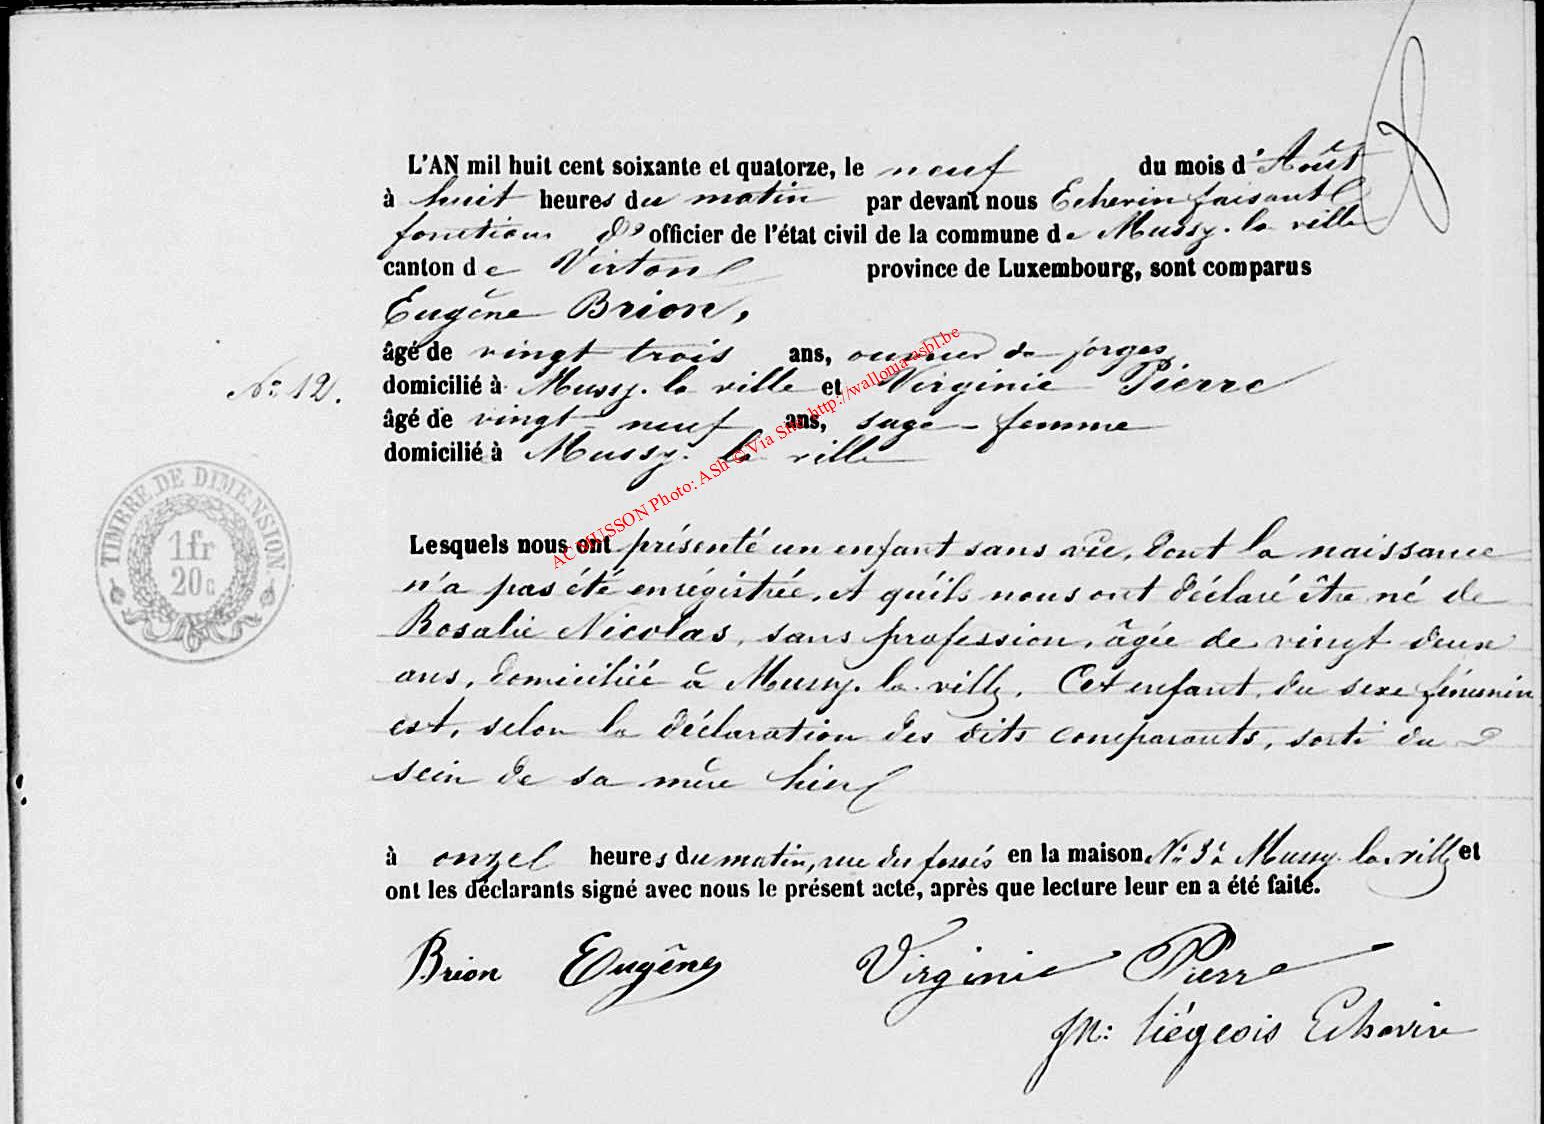 L'AN mil huit cent soixante et quatorze, le neuf du mois d'Août
à huit heures du matin par devant nous Echevin faisant
fonctions d' officier de l'état civil de la commune de Mussy-la-ville
canton de Virton province de Luxembourg, sont comparus
Eugène Brion,
âgé de vingt trois ans, ouvrier de forges,
domicilié à Mussy-la-ville et Virginie Pierre
âgé de vingt-neuf ans, sage-femme
domicilié à Mussy-la-ville
No 12.
TIMBRE DE DIMENSION
1fr
20c
Lesquels nous ont présenté un enfant sans vie, dont la naissance
n'a pas été enrégistrée, et qu'ils nous ont déclaré être né de
Rosalie Nicolas, sans profession, âgée de vingt deux
ans, domiciliée à Mussy-la-ville. Cet enfant, du sexe féminin
est, selon la déclaration des dits comparants, sorti du
sein de sa mère hier
à onze heures du matin, rue des fossés en la maison No 3 à Mussy-la-ville et
ont les déclarants signé avec nous le présent acte, après que lecture leur en a été faite.
Brion Eugène Virginie Pierre
Liégeois Echevin
AC MUSSON Photo: ASh © Via Site http://wallonia-asbl.be